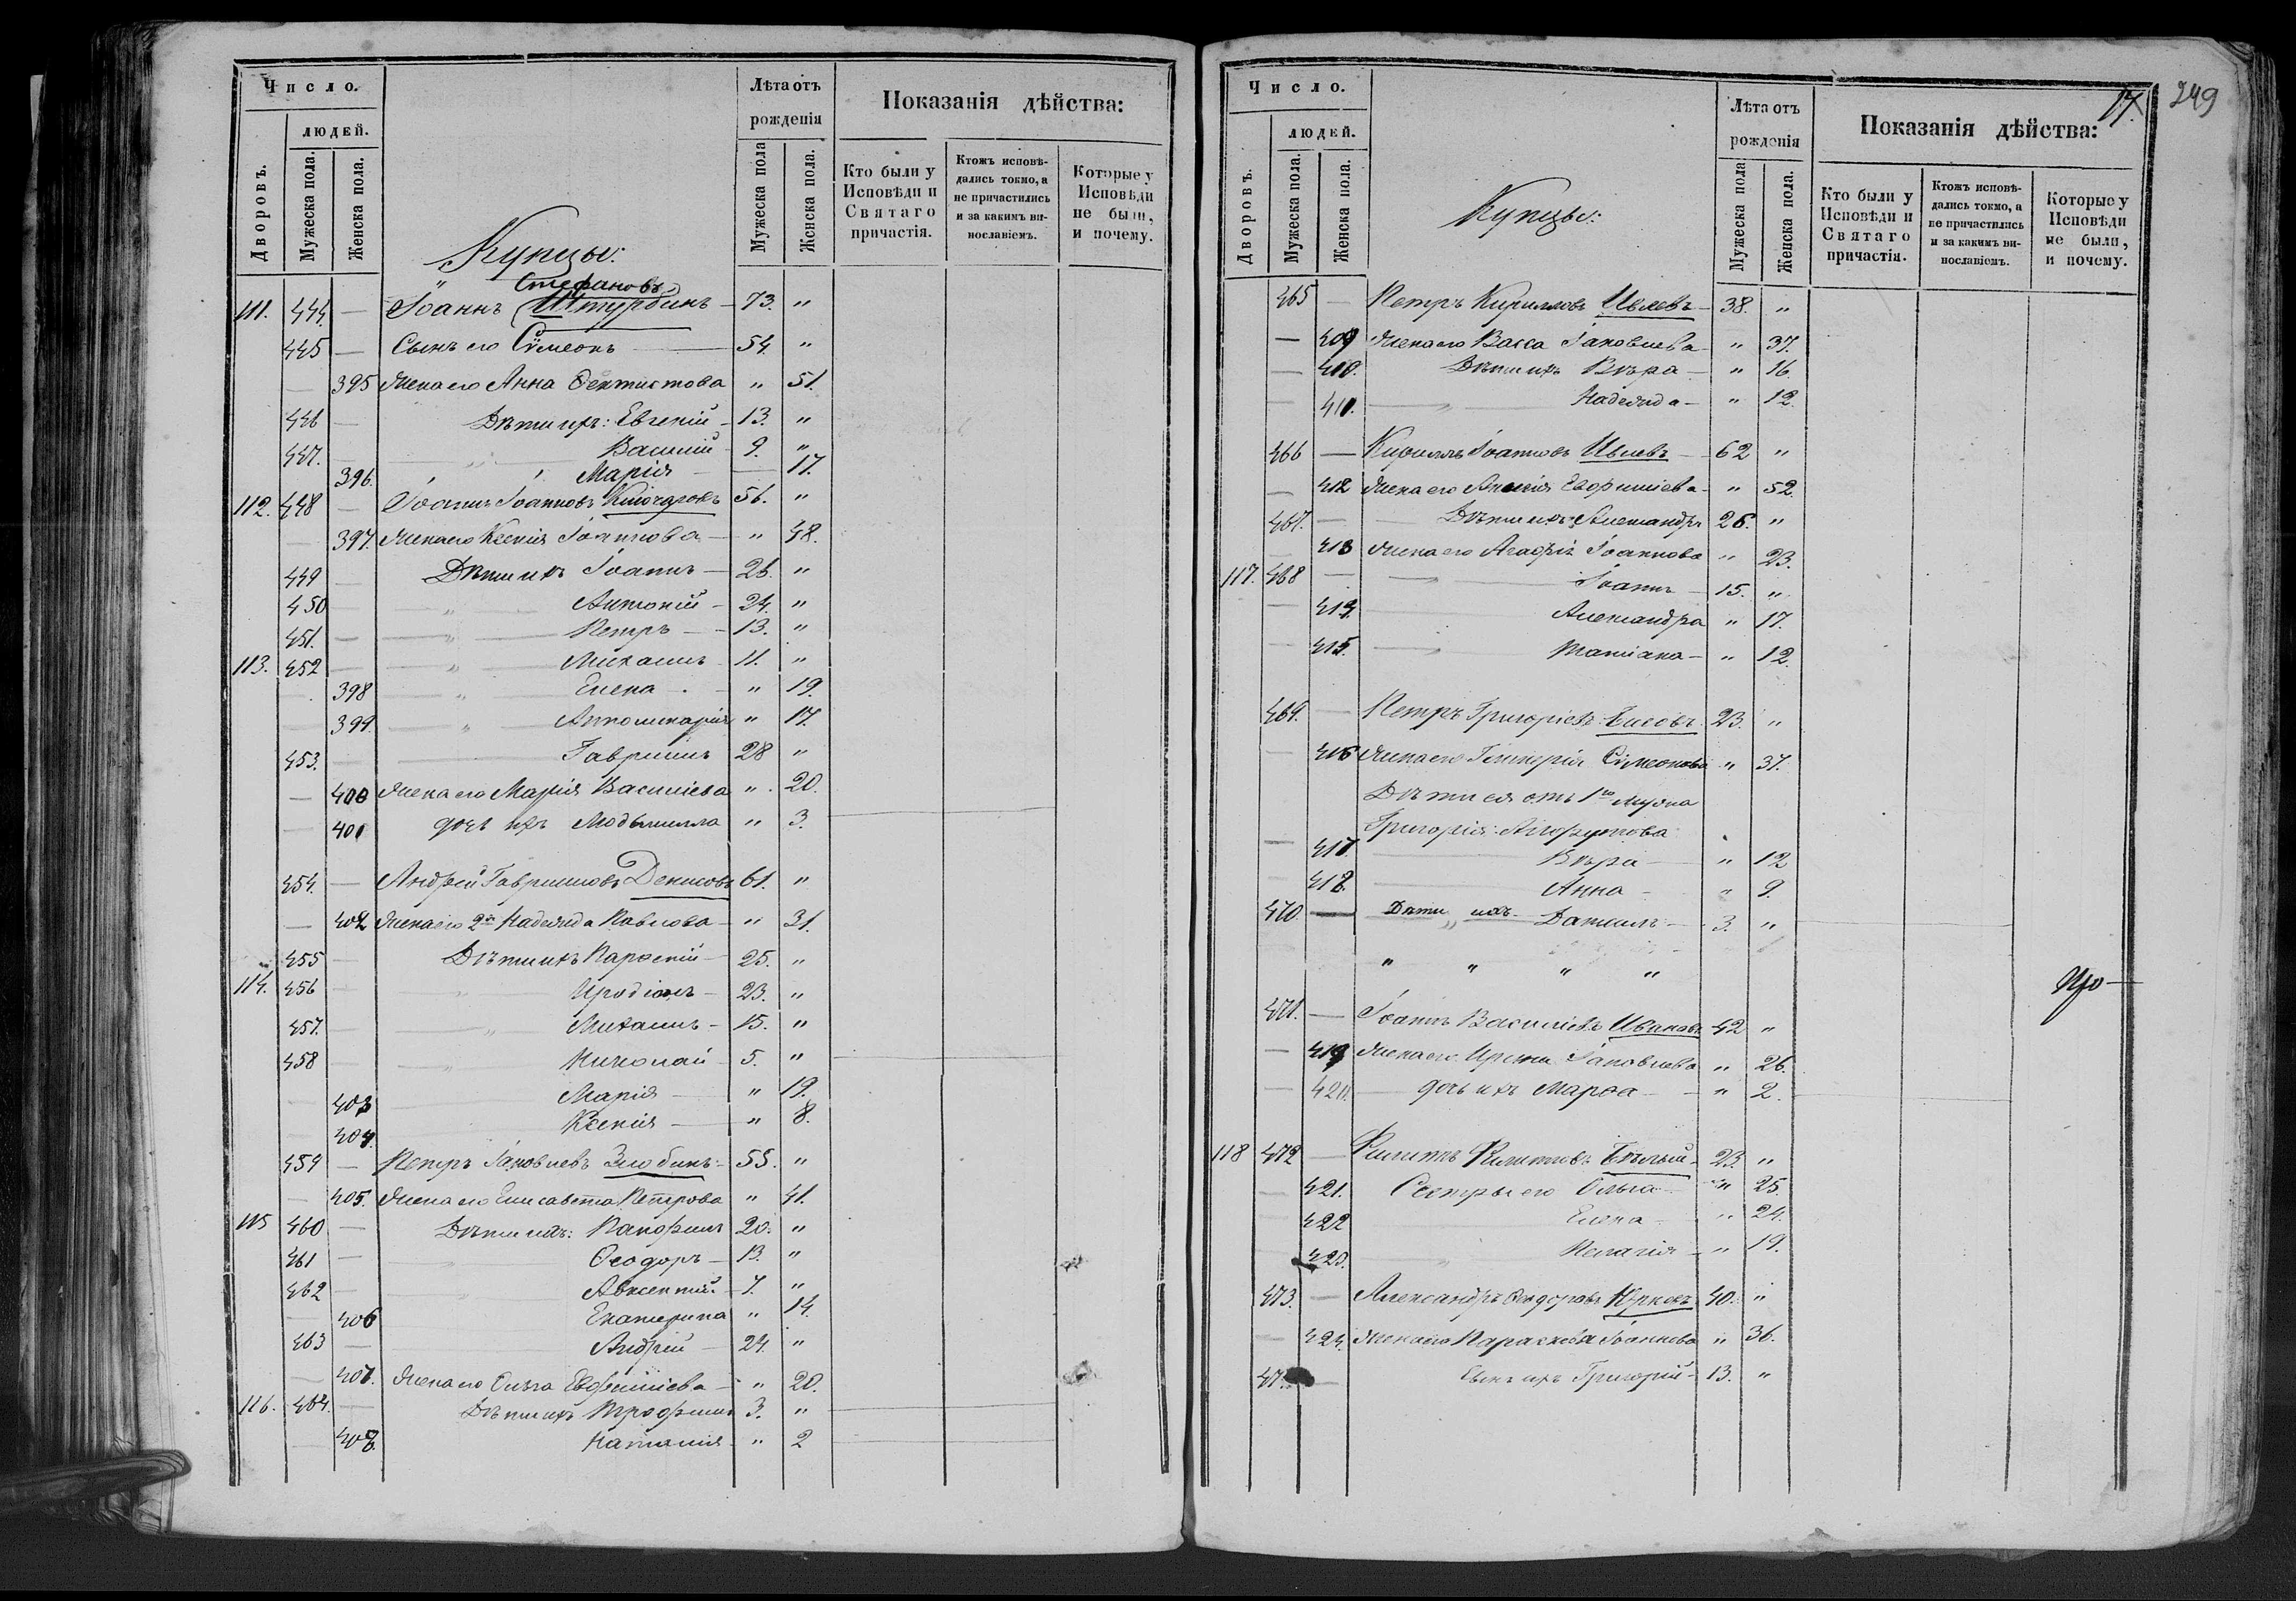 Число.
людей.
Дворовъ.
Мужеска пола.
Женска пола.
Купцы:
Лѣта отъ рожденія
Мужеска пола
Женска пола.
Показанія дѣйства:
Кто были у Исповѣди и Святаго причастія.
Ктожъ исповѣдались токмо, а не причастились и за какимъ винословіемъ.
Которые у Исповѣди не были, и почему.
Стефановъ
111. 444. — Іоаннъ Штурбинъ — 73. "
445 — Сынъ его Сѵмеонъ — 54. "
— 395 Жена его Анна Фектистова " 51.
446 — Дѣти ихъ: Евгеній — 13. "
447. — " Василій — 9. "
396. " Марія — 17.
112. 448 — Іоаннъ Іоанновъ 56. "
— 397. Жена его Ксенія Іоаннова — " 48.
449 — Дѣти ихъ Іоаннъ — 26. "
450 " Антоній — 24. "
451. — " Петръ — 13. "
113. 452 — " Михаилъ 11. "
398 " Елена — " 19.
399. " Апполинарія " 17.
453. — Гавріилъ 28 "
— 400 Жена его Марія Василіева " 20.
— 401 дочь ихъ Людьмилла " 3.
454. — Андрей Гавриловъ Денисовъ 61. "
— 402 Жена его 2я Надежда Павлова — " 31.
455 — Дѣти ихъ Парфеній — 25. "
114. 456 — " Иродіонъ — 23. "
457. — " Михаилъ — 15. "
458 " Николай — 5. "
403 Марія — " 19.
404. Ксенія — " 8.
459 — Петръ Іаковлевъ Злобинъ — 55. "
— 405. Жена его Елисавета Петрова " 41.
115 460 — Дѣти ихъ: Памфилъ 20. "
461 — " Ѳеодоръ — 13. "
462 — " Авксентій. 7. "
— 406 Екатерина " 14.
463 — Андрей — 24. "
— 407. Жена его Ольга Евфиміева — " 20.
116. 464. — Дѣти ихъ Трофимъ 3. "
— 408. Наталія — " 2
17. 249
Число.
людей.
Дворовъ.
Мужеска пола.
Женска пола.
Купцы:
Лѣта отъ рожденія
Мужеска пола
Женска пола.
Показанія дѣйства:
Кто были у Исповѣди и Святаго причастія.
Ктожъ исповѣдались токмо, а не причастились и за какимъ винословіемъ.
Которые у Исповѣди не были, и почему.
465 — Петръ Кирилловъ Ивлевъ — 38. "
— 409 Жена его Васса Іаковлева — " 37.
— 410. Дѣти ихъ Вѣра — " 16.
— 411. " Надежда — " 12.
466 — Кириллъ Іоанновъ Ивлевъ — 62 "
— 412 Жена его Евфиміева — " 52.
467. — Дѣти ихъ Александръ 26. "
— 413 Жена его Агафія Іоаннова " 23.
117. 468 — Іоаннъ — 15. "
— 414. Александра " 17.
— 415. " Татіана — " 12.
469. — Петръ Григоріевъ 23. "
— 416 Жена его Гликерія Сѵмеонова " 37.
Дѣти ея отъ 1го мужа
Григорія
— 417. Вѣра — " 12
418. Анна — " 9.
470. — Дѣти ихъ — Даніилъ — 3. "
" " " "
471. — Іоаннъ Василіевъ Ивановъ 42 "
— 419 Жена его Ирина Іаковлева " 26.
— 420. дочь ихъ Марфа — " 2.
118 472 — Филиппъ Филипповъ Бѣлый — 23. "
— 421. Сестры его Ольга — " 25.
422 Елена — " 24.
423. " Пелагія — " 19.
473. — Александръ Ѳеодоровъ 40. "
— 424. Жена его Параскева Іоаннова " 36.
— Сынъ ихъ Григорій — 13. "